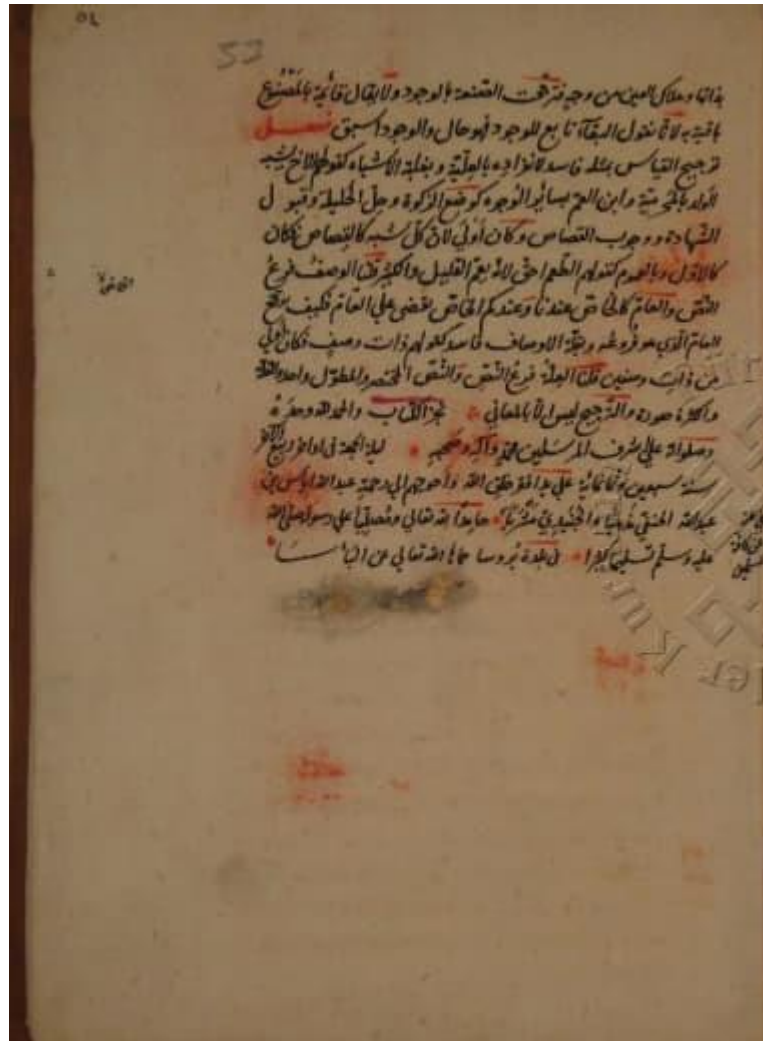 ٥٤
53
بذاتها وهلاك العين من وجه فترجحت الصنعة بالوجود ولا يقال قائمة بالمصنوع
باقية به لانا نقول البقاء تابع للوجود فهو حال والوجود اسبق فصل
ترجيح القياس بمثله فاسد لانفراده بالعلية وبغلبة الاشباه كقولهم الاخ يشبه
الولد بالمحرمية وابن العم بسائر الوجوه كوضع الزكوة وحل الحليلة وقبول
الشهادة ووجوب القصاص وكان أولى لان كل شبه كالقياس فكان
كالاول وبالعموم كقولهم الطعم احق لانه يعم القليل والكثير قلنا الوصف فرع
النص والعام كالخاص عندنا وعندكم الخاص يقضي علي العام فكيف يرجح
العام الذي هو فرعه وبقلة الاوصاف فاسد كقولهم ذات وصف فكان اولى
من ذات وصفين قلنا العلة فرع النص والنص المختصر والمطول واحد والقلة
والكثرة صورة والترجيح ليس الا بالمعاني تم الكتاب والحمد لله وحده
وصلواته علي شرف المرسلين محمد وآله وصحبه ليلة الجمعة في اواخر ربيع الآخر
سنة سبعين وثمانمائة علي يد افقر خلق الله واحوجهم الي رحمة عبد الله الياس بن
عبد الله الحنفي مذهبا والجنيدي مشربا حامدا لله تعالي ومصليا علي رسوله صلى الله
عليه وسلم تسليما كثيرا في بلدة بروسا حماها الله تعالي عن الباسا